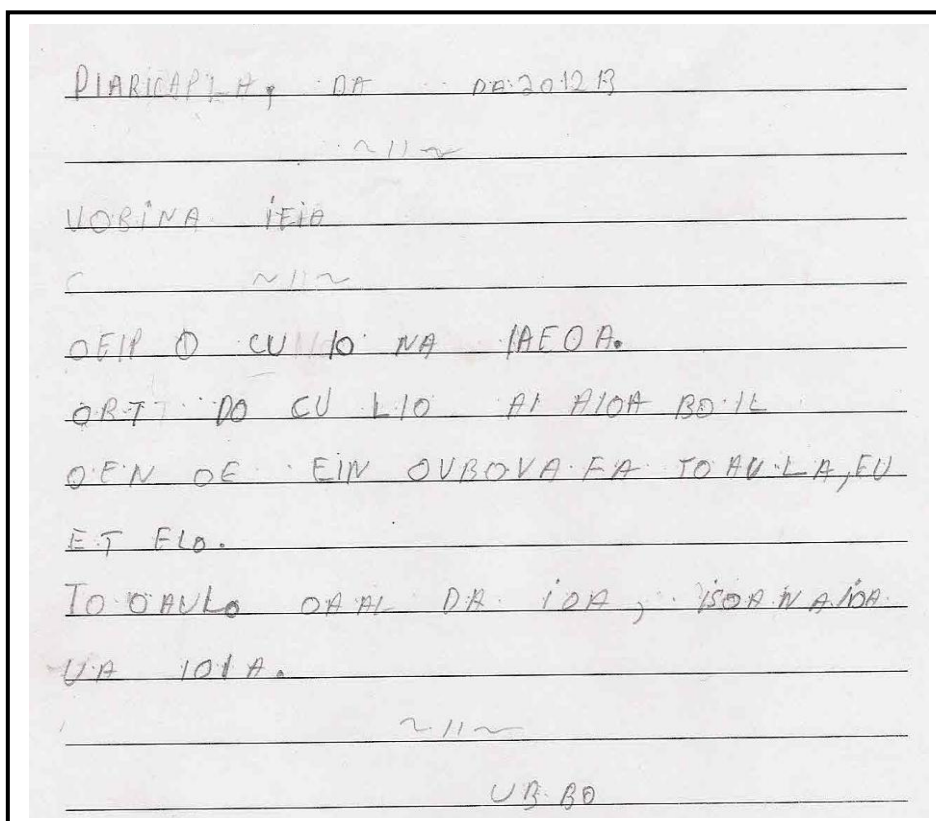 PIARICAPILA, DA DA 2012 B
~11~
VOBINA IEIA
C ~11~
OEIP O CU 110 NA IAEOA.
ORTT DO CU LIO AI AIOA BO IL
OEN OE EIN OVBOVA FA TO AU LA, EU
ET ELO.
TO OAULO OAAL DA IOA, ISOA N A IOA
UA IOIA.
~11~
UB BO